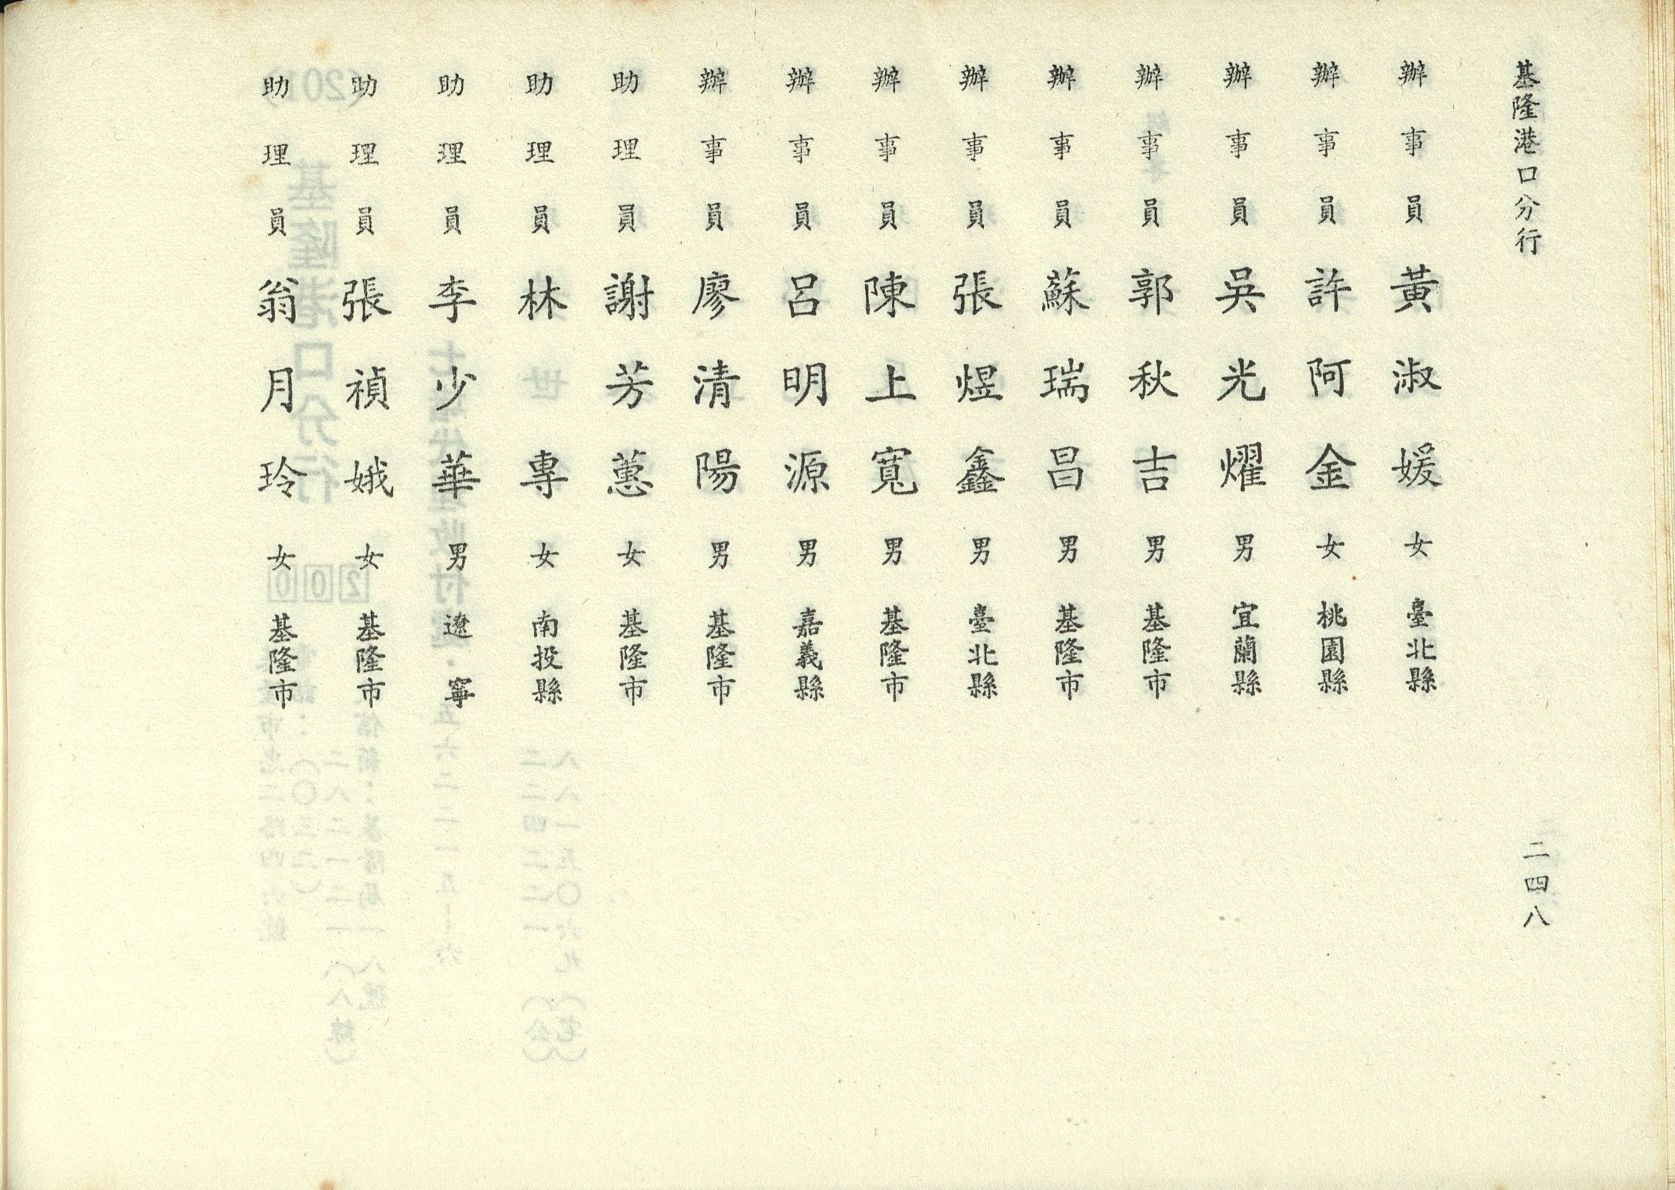 基隆港口分行
二四八
辦事員 黃淑媛 女 臺北縣
辦事員 許阿金 女 桃園縣
辦事員 吳光燿 男 宜蘭縣
辦事員 郭秋吉 男 基隆市
辦事員 蘇瑞昌 男 基隆市
辦事員 張煜鑫 男 臺北縣
辦事員 陳上寬 男 基隆市
辦事員 呂明源 男 嘉義縣
辦事員 廖清陽 男 基隆市
助理員 謝芳蕙 女 基隆市
助理員 林專 女 南投縣
助理員 李少華 男 遼寧
助理員 張禎娥 女 基隆市
助理員 翁月玲 女 基隆市